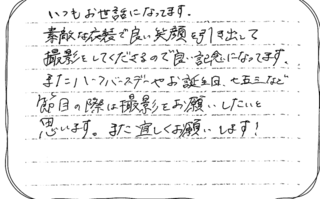 いつもお世話になってます。
素敵な衣装で良い笑顔を引き出して
撮影をしてくださるので良い記念になってます。
またハーフバースデーやお誕生日、七五三など
節目の際は撮影をお願いしたいと
思います。また宜しくお願いします!